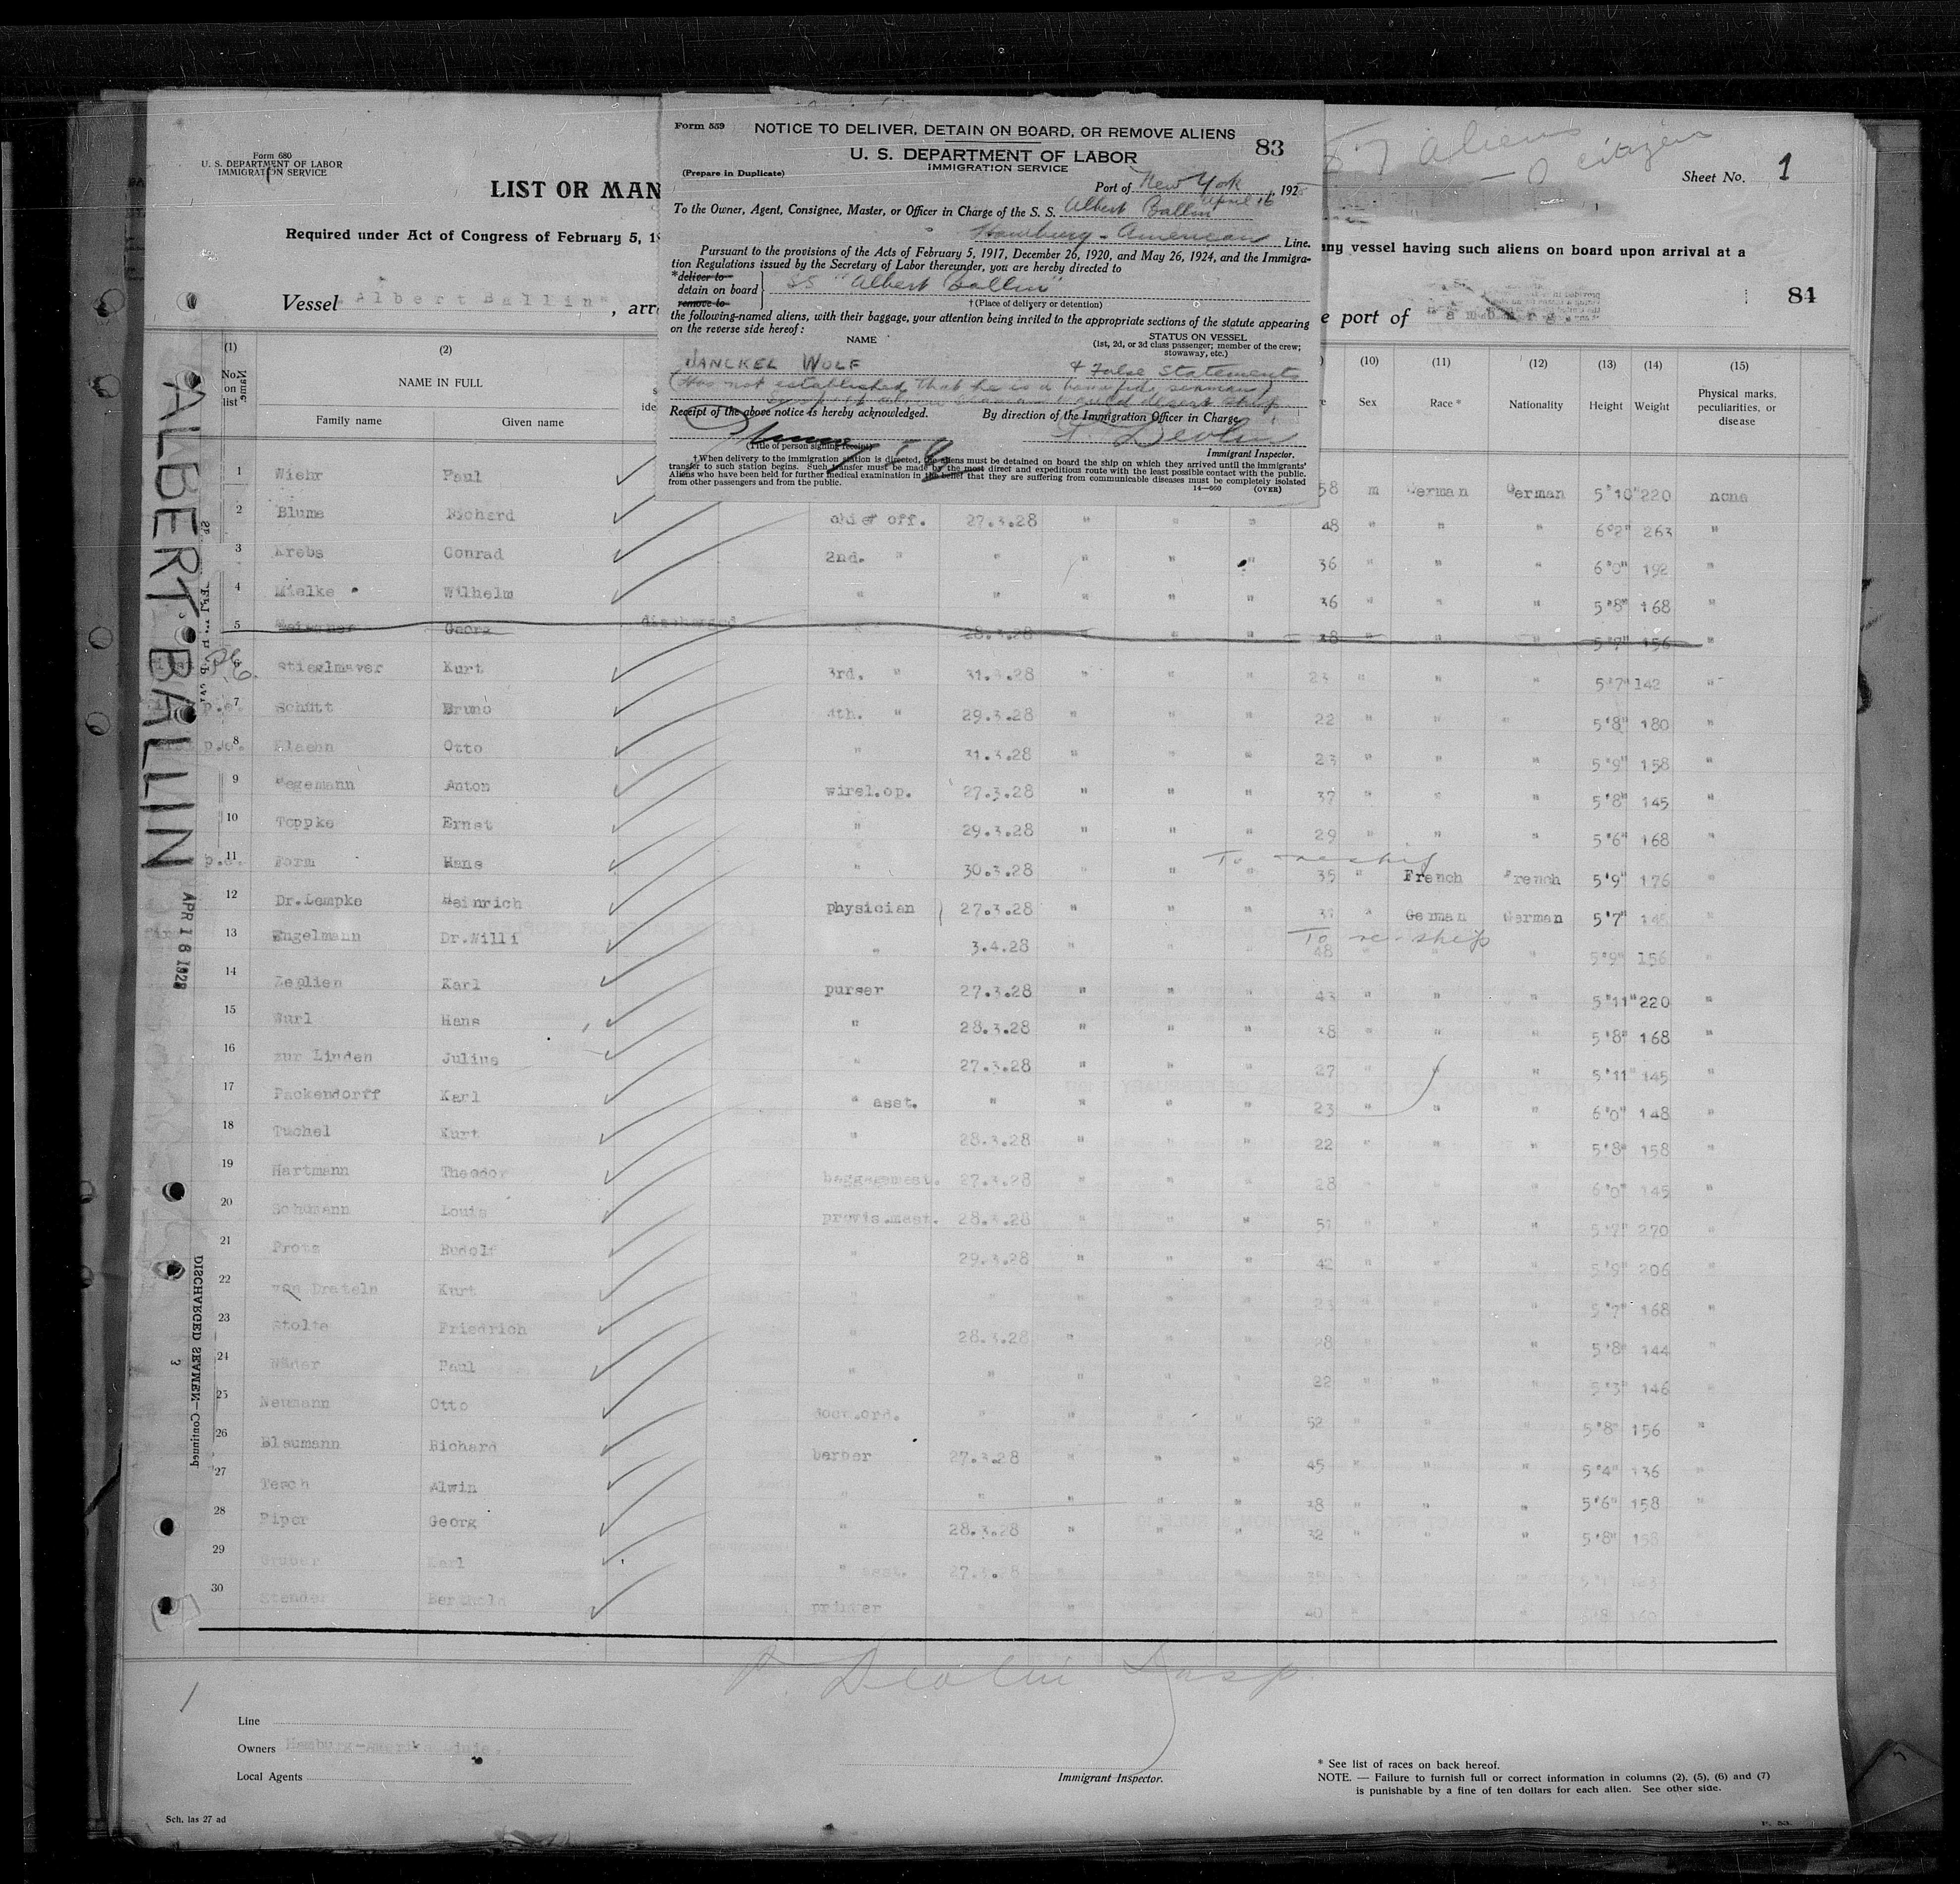 Form 680
U. S. DEPARTMENT OF LABOR
IMMIGRATION SERVICE
LIST OR MAN
Required under Act of Congress of February 5, 19
Vessel "Albert Ballin", arr
Form 559
NOTICE TO DELIVER, DETAIN ON BOARD, OR REMOVE ALIENS
83
U. S. DEPARTMENT OF LABOR
IMMIGRATION SERVICE
(Prepare in Duplicate)
Port of New York, April 16, 1928
To the Owner, Agent, Consignee, Master, or Officer in Charge of the S. S. Albert Ballin
Hamburg-American Line.
Pursuant to the provisions of the Acts of February 5, 1917, December 26, 1920, and May 26, 1924, and the Immigra-
tion Regulations issued by the Secretary of Labor thereunder, you are hereby directed to
*deliver to
detain on board
remove to
SS "Albert Ballin"
†(Place of delivery or detention)
the following-named aliens, with their baggage, your attention being invited to the appropriate sections of the statute appearing
on the reverse side hereof:
NAME
STATUS ON VESSEL
(1st, 2d, or 3d class passenger; member of the crew;
stowaway, etc.)
WOLF
& False Statements
(Has not established that he is a bona fide seaman)
desert ship
Receipt of the above notice is hereby acknowledged. By direction of the Immigration Officer in Charge,
Devlin
(Title of person signing receipt)
Immigrant Inspector.
†When delivery to the immigration station is directed, the aliens must be detained on board the ship on which they arrived until the immigrants'
transfer to such station begins. Such transfer must be made by the most direct and expeditious route with the least possible contact with the public.
Aliens who have been held for further medical examination in the belief that they are suffering from communicable diseases must be completely isolated
from other passengers and from the public.
14—660 (OVER)
aliens
0 citizen
Sheet No. 1
any vessel having such aliens on board upon arrival at a
84
e port of Hamburg.
(1) (2) (10) (11) (12) (13) (14) (15)
No. on list
NAME IN FULL
Family name Given name
Sex Race* Nationality Height Weight Physical marks, peculiarities, or disease
1 Wiehr Paul 58 m German German 5'10" 220 none
2 Blume Richard chief off. 27.3.28 " " " 48 " " " 6'2" 263 "
3 Krebs Conrad 2nd. " " " " " 36 " " " 6'0" 192 "
4 Mielke Wilhelm " " " " " 36 " " " 5'8" 168 "
5 Georg discharged " 28.3.28 " " " 38 " " " 5'9" 156 "
6 Stieglmayer Kurt 3rd. " 31.3.28 " " " 23 " " " 5'7" 142 "
p.e. 7 Schütt Bruno 4th. " 29.3.28 " " " 22 " " " 5'8" 180 "
p.e. 8 Klaehn Otto " 31.3.28 " " " 23 " " " 5'9" 158 "
9 Hegemann Anton wirel.op. 27.3.28 " " " 37 " " " 5'8" 145 "
10 Toppke Ernst " 29.3.28 " " " 29 " " " 5'6" 168 "
To reship
p.e. 11 Form Hans " 30.3.28 " " " 35 " French French 5'9" 176 "
12 Dr.Lempke Heinrich physician 27.3.28 " " " 31 " German German 5'7" 145 "
To re-ship
13 Engelmann Dr.Willi " 3.4.28 48 " " " 5'9" 156 "
14 Zeplien Karl purser 27.3.28 " " " 43 " " " 5'11" 220 "
15 Wurl Hans " 28.3.28 " " " 38 " " " 5'8" 168 "
16 zur Linden Julius " 27.3.28 " " " 27 " " " 5'11" 145 "
17 Packendorff Karl " asst. " " " " 23 " " " 6'0" 148 "
18 Tuchel Kurt " 28.3.28 " " " 22 " " " 5'8" 158 "
19 Hartmann Theodor baggagemast. 27.3.28 " " " 28 " " " 6'0" 145 "
20 Schumann Louis provis.mast. 28.3.28 " " " 51 " " " 5'7" 270 "
21 Prots Rudolf " 29.3.28 " " " 42 " " " 5'9" 206 "
22 von Drateln Kurt " " " " " 23 " " " 5'7" 168 "
23 Stolte Friedrich " 28.3.28 " " " 28 " " " 5'8" 144 "
24 Wäder Paul " " " " " 22 " " " 5'3" 146 "
25 Neumann Otto " " " " 52 " " " 5'8" 156 "
26 Blaumann Richard barber 27.3.28 " " " 45 " " " 5'4" 136 "
27 Tesch Alwin " " " " " 38 " " " 5'6" 158 "
28 Piper Georg " 28.3.28 " " " 32 " " " 5'8" 158
29 Gruber Karl " asst. 27.3.8
30 Stender Berthold printer " " " " 40
ALBERT BALLIN
APR 16 1928
DISCHARGED SEAMEN—Continued
3
Devlin Insp.
Line
Owners Hamburg-Amerika Linie.
Local Agents
Immigrant Inspector.
* See list of races on back hereof.
NOTE. — Failure to furnish full or correct information in columns (2), (5), (6) and (7)
is punishable by a fine of ten dollars for each alien. See other side.
Sch. las 27 ad